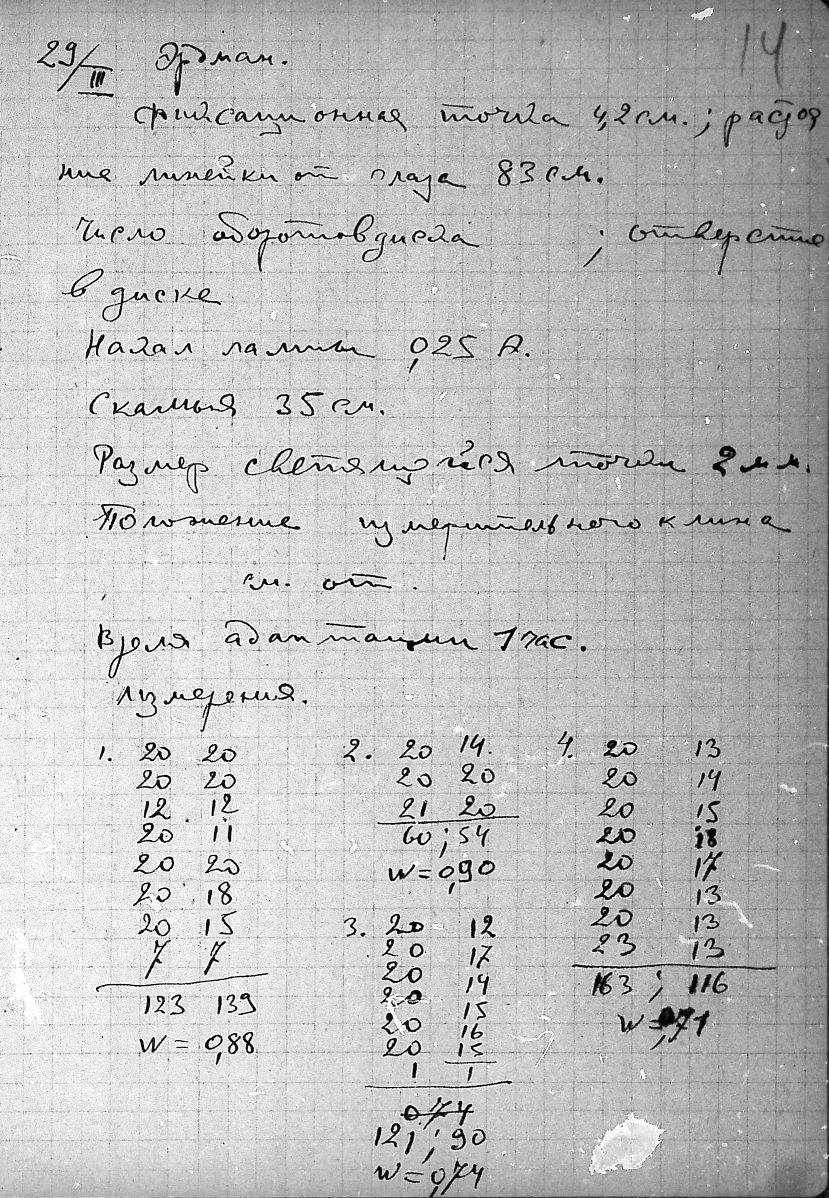 14
29/III Эрдман.
фиксационная точка 4,2 см.; растоя
ние линейки от глаза 83 см.
Число оборотов диска ; отверстие
в диске
Накал лампы 0,25 А.
Скамья 35 см.
Размер светящейся точки 2 мм.
Положение измерительного клина
см. от .
Время адаптации 1 час.
Измерения.
1. 20 20
20 20
12 12
20 11
20 20
20 18
20 15
7 7
123 139
W = 0,88
2. 20 14
20 20
21 20
60 ; 54
W = 0,90
3. 20 12
20 17
20 14
20 15
20 16
20 15
1 1
0,74
121 ; 90
W = 0,74
4. 20 13
20 14
20 15
20 18
20 17
20 13
20 13
23 13
163 ; 116
W = 0,71